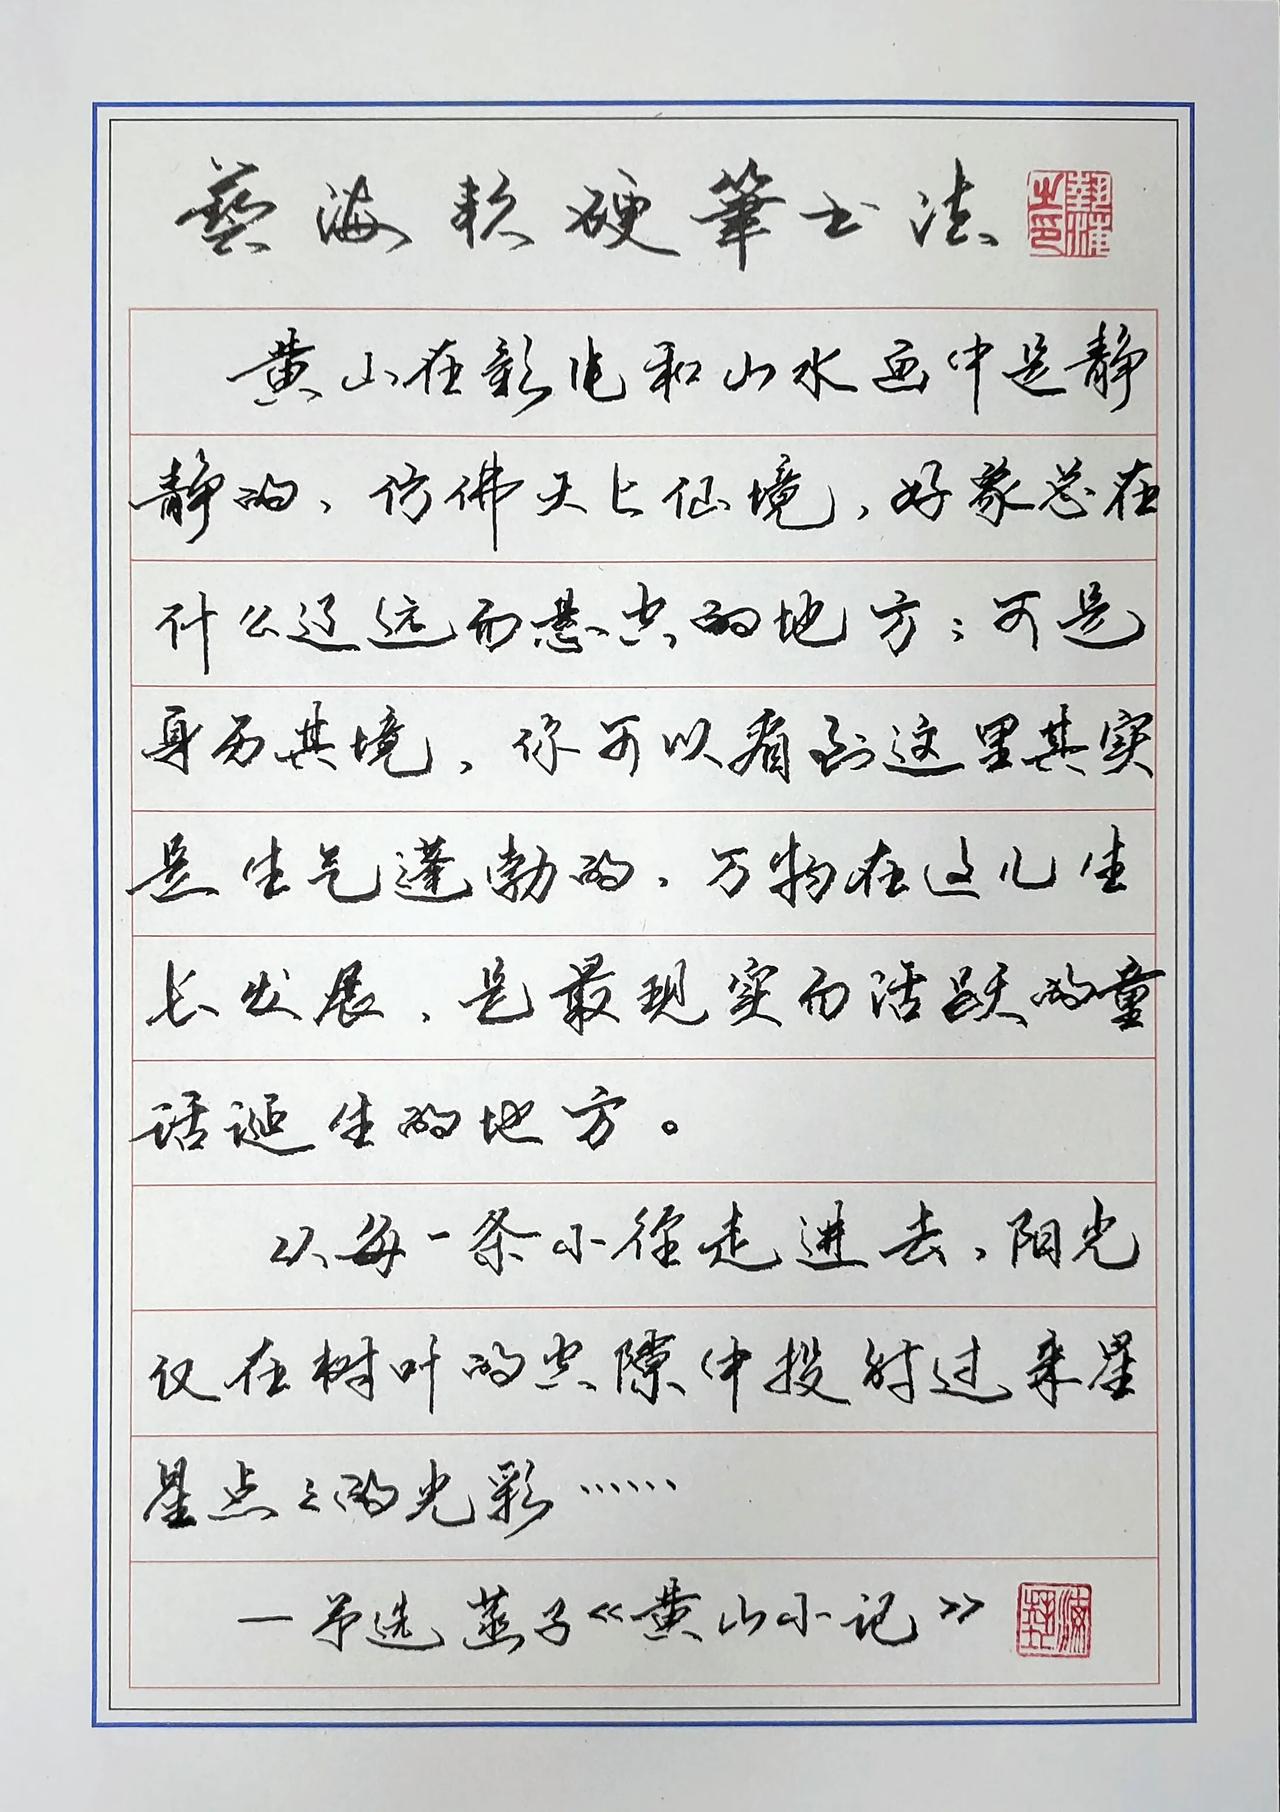 藝海软硬筆书法
黄山在影片和山水画中是静
静的，仿佛天上仙境，好象总在
什么辽远而悬空的地方；可是
身历其境，你可以看到这里其实
是生气蓬勃的，万物在这儿生
长发展，是最现实而活跃的童
话诞生的地方。
从每一条小径走进去，阳光
仅在树叶的空隙中投射过来星
星点点的光彩……
—节选 菡子《黄山小记》